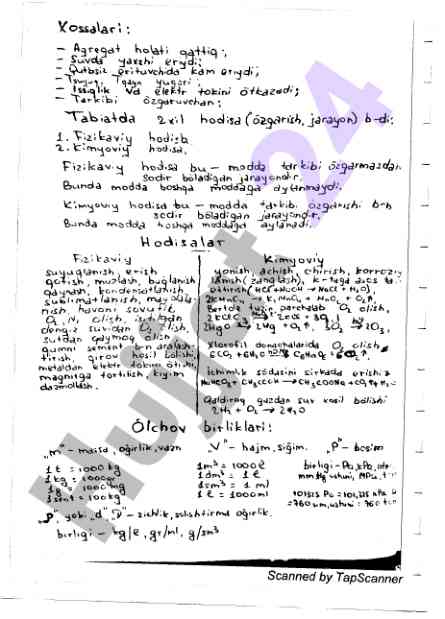 Xossalari:
- Agregat holati qattiq;
- Suvda yaxshi eriydi;
- Qutbsiz erituvchida kam eriydi;
- Tsuyuq, Tqayn yuqori;
- Issiqlik va elektr tokini o'tkazadi;
- Tarkibi o'zgaruvchan;
Tabiatda 2 xil hodisa (o'zgarish, jarayon) b-di:
1. Fizikaviy hodisa
2. Kimyoviy hodisa.
Fizikaviy hodisa bu - modda tarkibi o'zgarmasdan
sodir bo'ladigan jarayondir.
Bunda modda boshqa moddaga aylanmaydi.
Kimyoviy hodisa bu - modda tarkibi o'zgarishi b-n
sodir bo'ladigan jarayondir.
Bunda modda boshqa moddaga aylanadi.
Hodisalar
Fizikaviy
suyuqlanish, erish
qotish, muzlash, bug'lanish
qaynash, kondensatlanish,
sublimatlanish, maydala-
nish, havoni sovutib
O₂, N₂ olish, iflosdan
dengiz suvidan olish,
sutdan qaymoq olish
qumni sement b-n aralash-
tirish, qirov hosil bo'lishi,
metaldan elektr tokini o'tishi,
magnitga tortilish, kiyim
dazmollash.
Kimyoviy
yonish, achish, chirish, korroziy
lanish (zanglash),
(HCl + NaOH → NaCl + H₂O),
2KMnO₄ → K₂MnO₄ + MnO₂ + O₂↑,
Bertole tuzini parchalab O₂ olish,
2KClO₃ → 2KCl + 3O₂↑
2HgO → 2Hg + O₂↑, 3O₂ → 2O₃,
Xlorofil donachalarida O₂ olish
6CO₂ + 6H₂O → C₆H₁₂O₆ + 6O₂↑.
Ichimlik sodasini sirkada erishi
NaHCO₃ + CH₃COOH → CH₃COONa + CO₂↑ + H₂O
Qaldiroq gazdan suv hosil bo'lishi
2H₂ + O₂ → 2H₂O
O'lchov birliklari:
"m" - massa, og'irlik, vazn
1 t = 1000 kg
1 kg = 1000 gr
1 g = 1000 mg
1 sent = 100 kg
"V" - hajm, sig'im.
1m³ = 1000 ℓ
1dm³ = 1 ℓ
1sm³ = 1 ml
1 ℓ = 1000 ml
"P" - bosim
birligi - Pa, kPa, atm
mm.Hg ustuni, MPa,
101325 Pa = 101,325 kPa
= 760 mm, ustuni = 760
"ρ" yoki "d", "D" - zichlik, solishtirma og'irlik.
birligi - kg/ℓ, gr/ml, g/sm³
Hujjat24
Scanned by TapScanner